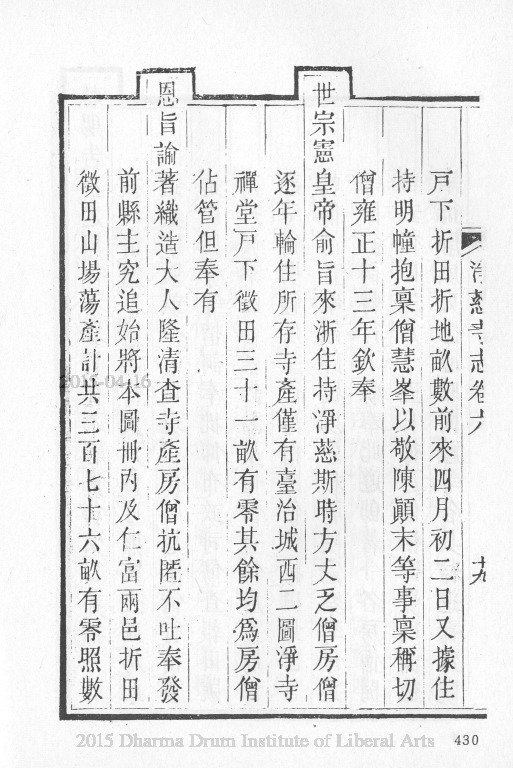 淨慈寺志卷六 十九
戸下折田折地畝數前來四月初二日又據住
持明幢抱稟僧慧峯以敬陳顚末等事稟稱切
僧雍正十三年欽奉
世宗憲皇帝俞旨來浙住持淨慈斯時方丈乏僧房僧
逐年輪住所存寺產僅有臺治城西二圖淨寺
禪堂戸下徵田三十畝有零其餘均爲房僧
佔管但奉有
恩旨諭著織造大人隆清查寺產房僧抗匿不吐奉發
前縣主究追始將本圖冊內及仁富兩邑折田
徵田山場蕩產計共三百七十六畝有零照數
2015-04-16
2015 Dharma Drum Institute of Liberal Arts 430